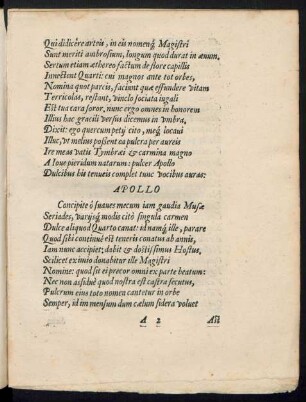 Qui didicêre artis, in eis nomenq́ Magistri
Sunt meriti ambrosium, longum quod durat in æuum.
Sertum etiam æthereo factum de flore capilli
Innectant Quarti: cui magnos ante tot orbes,
Nomina quot parcis, faciunt quæ effundere vitam
Terricolas, restant, vinclo sociata iugali
Est tua cara soror, nunc ergo omnes in honorem
Illius hac gracili versus dicemus in vmbra,
Dixit: ego quercum petij cito, meq́ locaui
Illuc, vt melius possent ea pulcra per aureis
Ire meas vatis Tymbræi & carmina magno
A Ioue pieridum natarum: pulcer Apollo
Dulcibus his tenueis complet tunc vocibus auras:
APOLLO
Concipite ô suaues mecum iam gaudia Musæ
Seriades, varijsq́ modis citò singula carmen
Dulce aliquod Quarto canat: id namq́ ille, parare
Quod sibi continuè est teneris conatus ab annis,
Iam nunc accipiet; dabit & doctissimus Hustus,
Scilicet eximio donabitur ille Magistri
Nomine: quod sit ei precor omni ex parte beatum:
Nec non aisibit quod nostra est castra secutus,
Pulcrum eius toto nomen cantetur in orbe
Semper, id immensum dum cælum sidera voluet
A 2